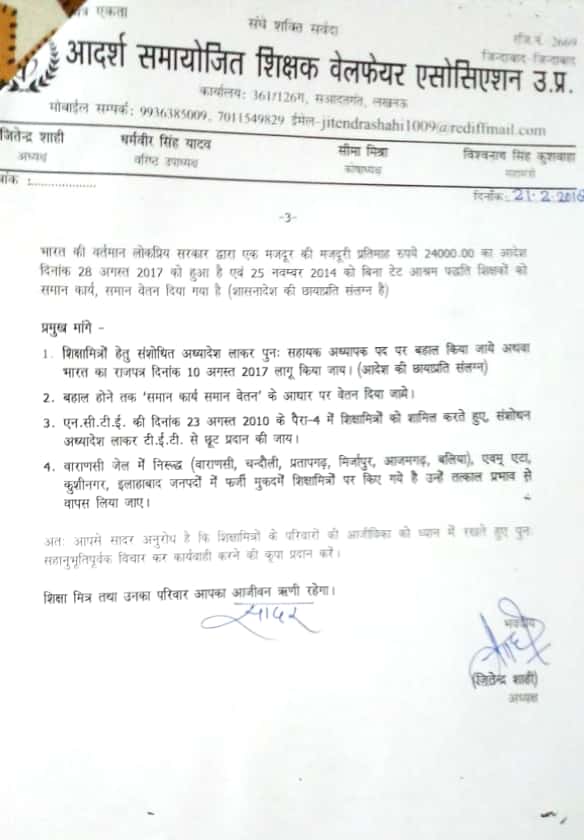 एकता
संघे शक्ति सर्वदा
रजि.नं. 2669
जिन्दाबाद-जिन्दाबाद
आदर्श समायोजित शिक्षक वेलफेयर एसोसिएशन उ.प्र.
कार्यालय: 361/126ग, सआदतगंज, लखनऊ
मोबाईल सम्पर्क: 9936385009, 7011549829 ईमेल-jitendrashahi1009@rediffmail.com
जितेन्द्र शाही धर्मवीर सिंह यादव सीमा मिश्रा विश्वनाथ सिंह कुशवाहा
अध्यक्ष वरिष्ठ उपाध्यक्ष कोषाध्यक्ष महामंत्री
दिनाँक: 21.2.2018
-3-
भारत की वर्तमान लोकप्रिय सरकार द्वारा एक मजदूर की मजदूरी प्रतिमाह रुपये 24000.00 का आदेश
दिनांक 28 अगस्त 2017 को हुआ है एवं 25 नवम्बर 2014 को बिना टेट आश्रम पद्धति शिक्षकों को
समान कार्य, समान वेतन दिया गया है (शासनादेश की छायाप्रति संलग्न है)
प्रमुख मांगे -
1. शिक्षामित्रों हेतु संशोधित अध्यादेश लाकर पुनः सहायक अध्यापक पद पर बहाल किया जाये अथवा
भारत का राजपत्र दिनांक 10 अगस्त 2017 लागू किया जाय। (आदेश की छायाप्रति संलग्न)
2. बहाल होने तक 'समान कार्य समान वेतन' के आधार पर वेतन दिया जाये।
3. एन.सी.टी.ई. की दिनांक 23 अगस्त 2010 के पैरा-4 में शिक्षामित्रों को शामिल करते हुए, संशोधन
अध्यादेश लाकर टी.ई.टी. से छूट प्रदान की जाय।
4. वाराणसी जेल में निरूद्ध (वाराणसी, चन्दौली, प्रतापगढ़, मिर्जापुर, आजमगढ़, बलिया), एवम् एटा,
कुशीनगर, इलाहाबाद जनपदों में फर्जी मुकदमें शिक्षामित्रों पर किए गये है उन्हें तत्काल प्रभाव से
वापस लिया जाए।
अतः आपसे सादर अनुरोध है कि शिक्षामित्रों के परिवारों की आजीविका को ध्यान में रखते हुए पुनः
सहानुभूतिपूर्वक विचार कर कार्यवाही करने की कृपा प्रदान करें।
शिक्षा मित्र तथा उनका परिवार आपका आजीवन ऋणी रहेगा।
सादर
भवदीय
(जितेन्द्र शाही)
अध्यक्ष